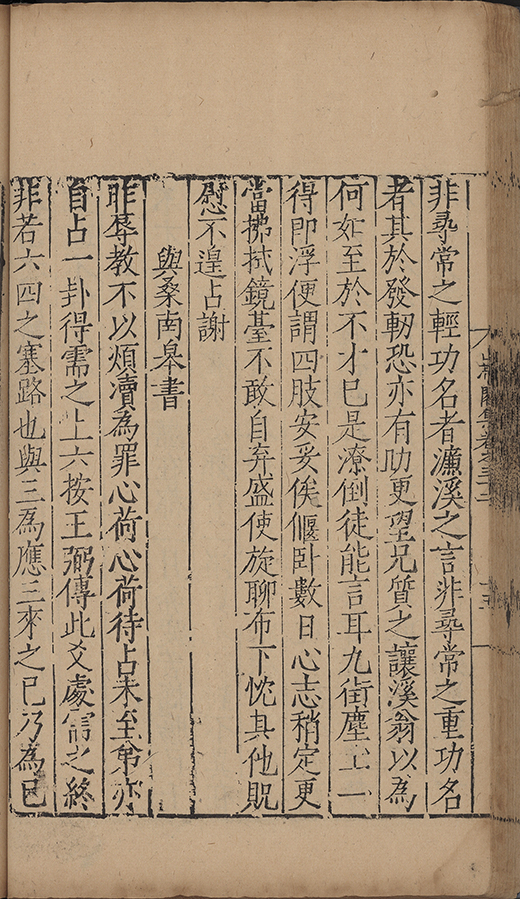 非尋常之輕功名者濂溪之言非尋常之重功名
者其於發軔恐亦有助更望兄質之讓溪翁以為
何如至於不才已是潦倒徒能言耳九街塵土一
得即浮便謂四肢安妥俟偃卧數日心志稍定更
當拂拭鏡臺不敢自弃盛使旋聊布下忱其他貺
慰不遑占謝
與桑南皋書
昨辱教不以煩瀆為罪心荷心荷待占未至弟亦
自占一卦得需之上六按王弼傳此爻處需之終
非若六四之塞路也與三為應三來之已乃為已